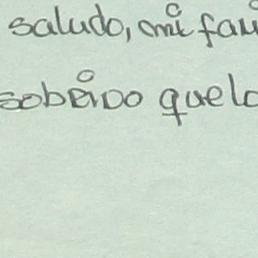 saludo, mi fau
sobrino quelo